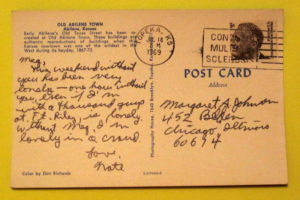 OLD ABILENE TOWN
Abilene, Kansas
Early Abilene's Old Texas Street has been re-
created at Old Abilene Town. These buildings are
authentic reproductions of buildings when this
Kansas cowtown was one of the wildest in the
West during its heyday: 1867-72.
TOPEKA, KS
JUL 14
PM
1969
CON
MULT
SCLEROSIS
POST CARD
Address
Meg,
This weekend without
you has been very
lonely - one hour without
you, even if I'm
with a thousand guys
at Ft. Riley, is lonely.
Without Meg, I'm
lonely in a crowd.
Love,
Nate
Margaret A. Johnson
452
Chicago, Illinois
60674
Color by Don Richards